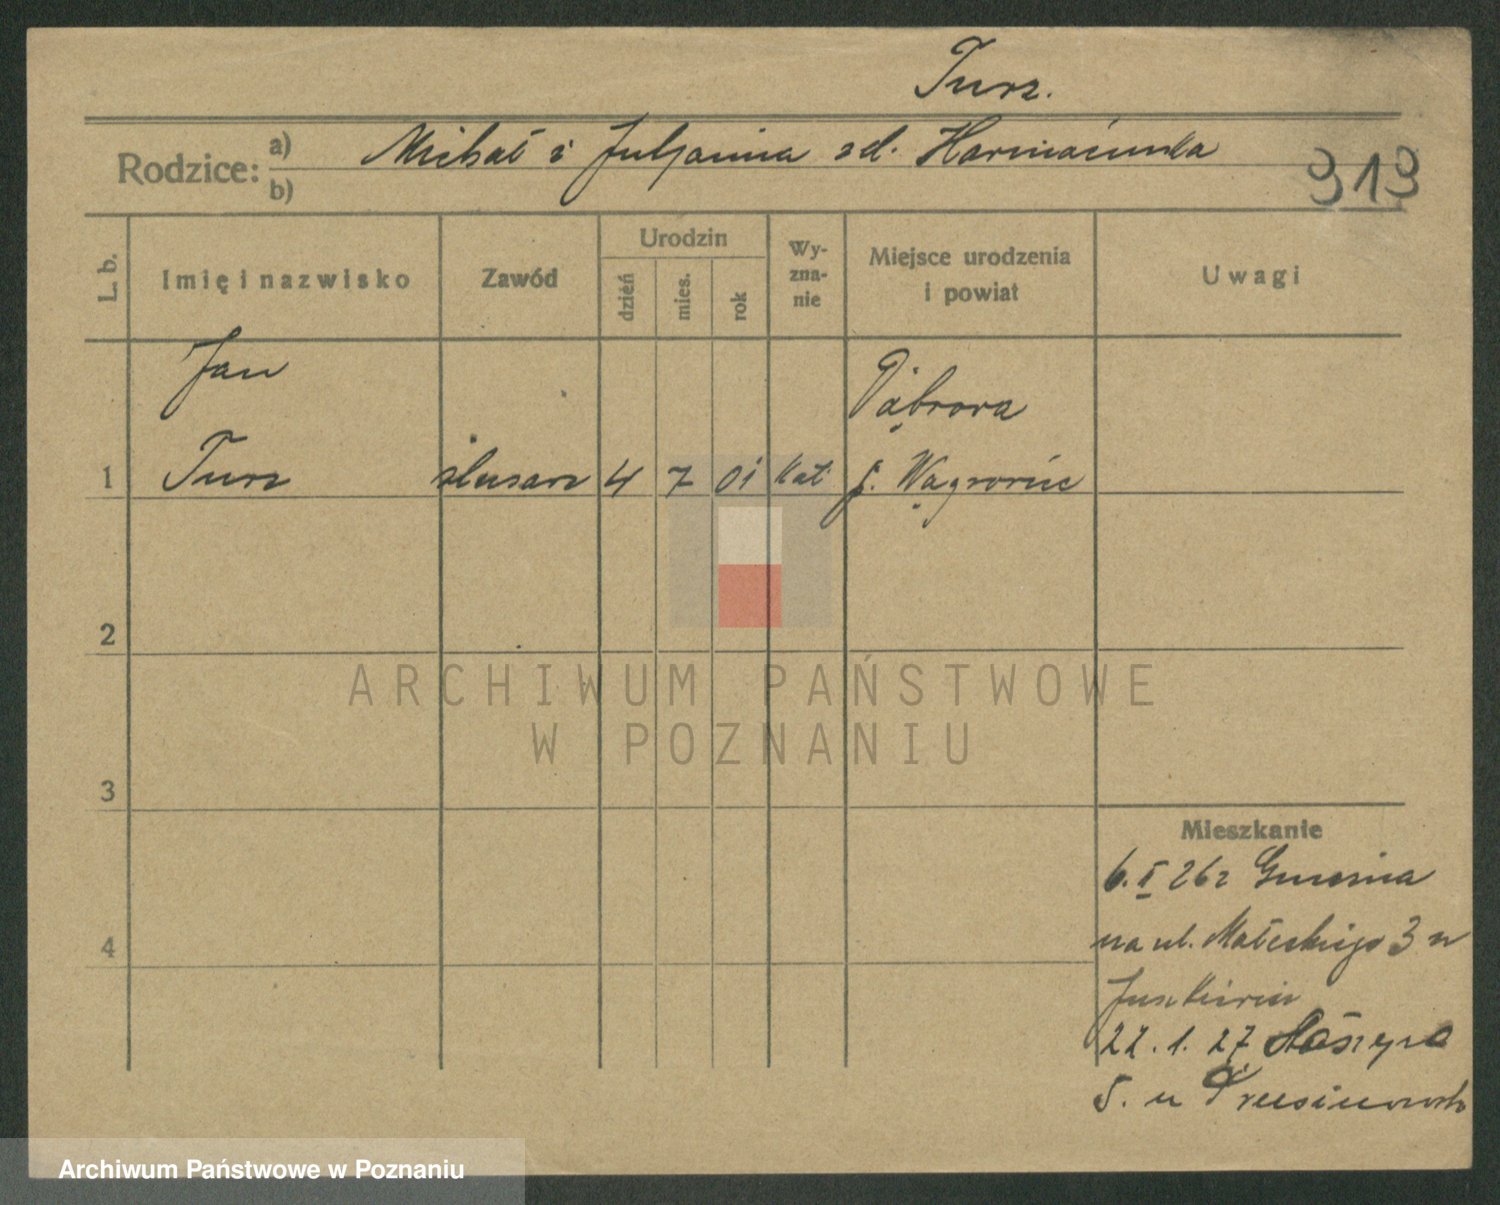 Turz.
Rodzice: a) Michał i Juljanna zd.
b)
919
L. b.
Imię i nazwisko
Zawód
Urodzin
dzień
mies.
rok
Wy-
zna-
nie
Miejsce urodzenia
i powiat
Uwagi
Jan
Dąbrowa
1 Turz ślusarz 4 7 01 kat p. Wągrowiec
2
3
4
ARCHIWUM PAŃSTWOWE
W POZNANIU
Mieszkanie
6. I 26 z Gniezna
na ul. Małeckiego 3 u
22. 1. 27
5. u
Archiwum Państwowe w Poznaniu